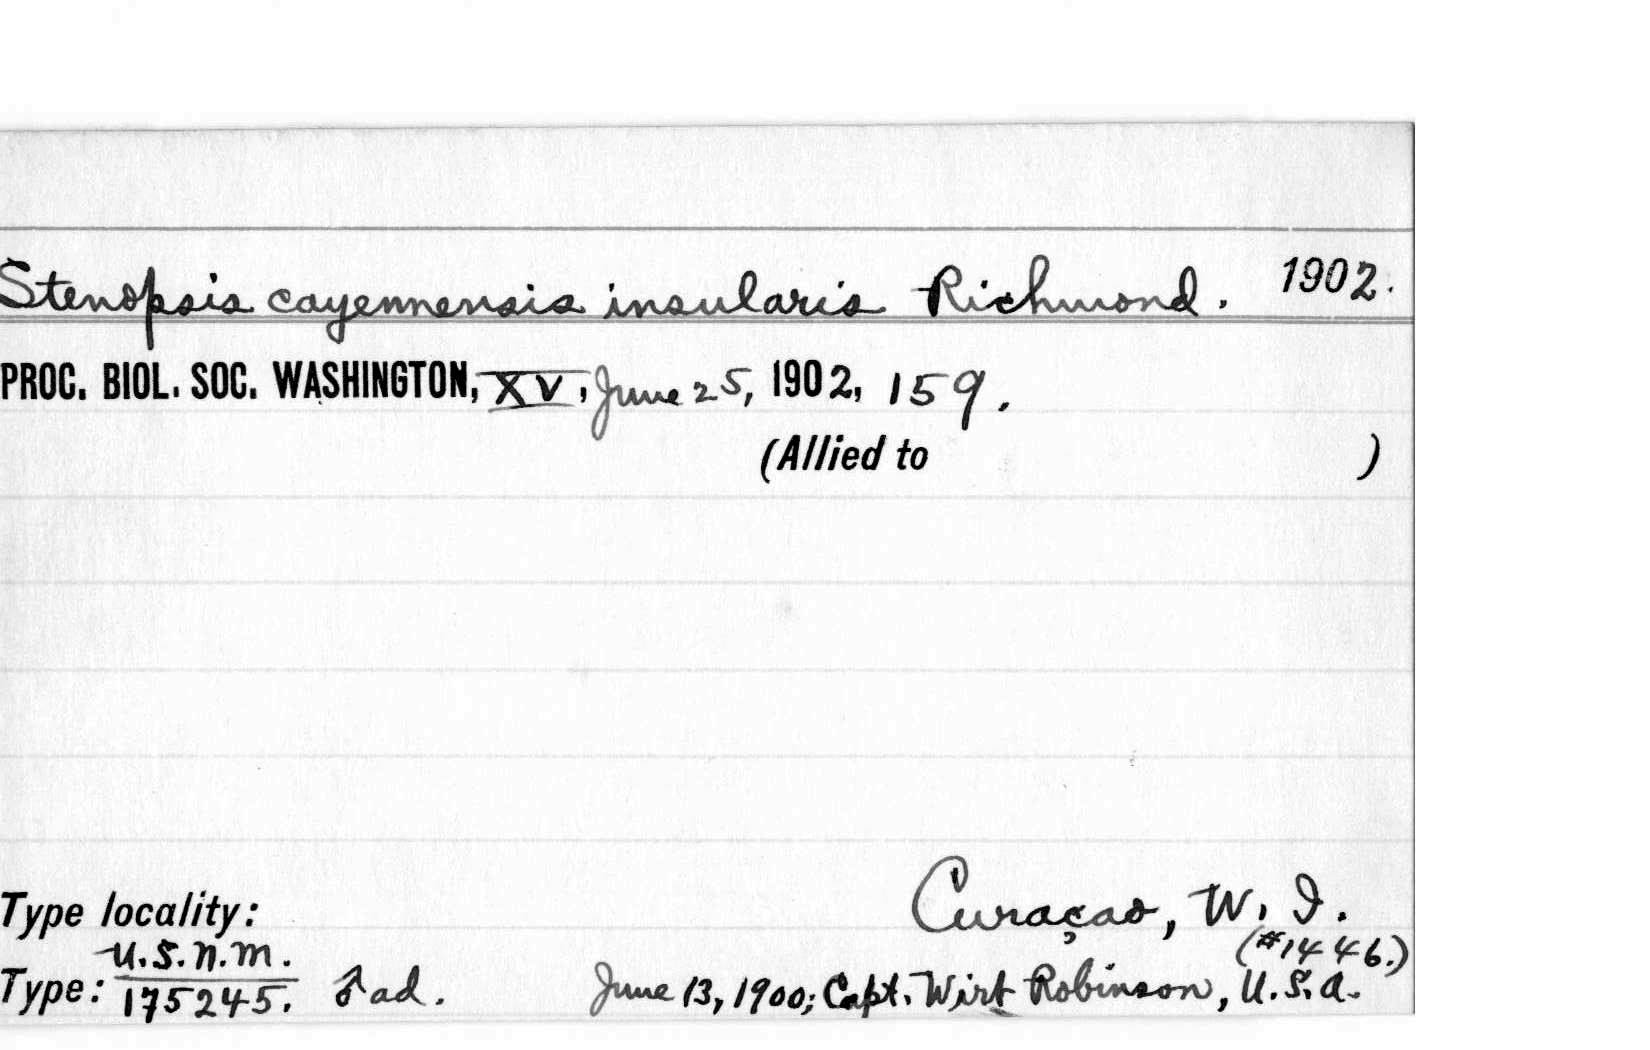 Stenopsis cayennensis insularis Richmond. 1902.
PROC. BIOL. SOC. WASHINGTON, XV, June 25, 1902, 159.
(Allied to )
Type locality: Curaçao, W. I.
U.S.N.M. (#1446.)
Type: 175245. ♂ ad. June 13, 1900; Capt. Wirt Robinson, U.S.A.